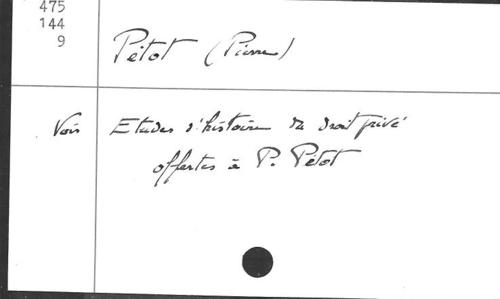 475
144
9
Pétot (Pierre)
Vois Etudes d'histoire du droit privé
offertes à P. Pétot